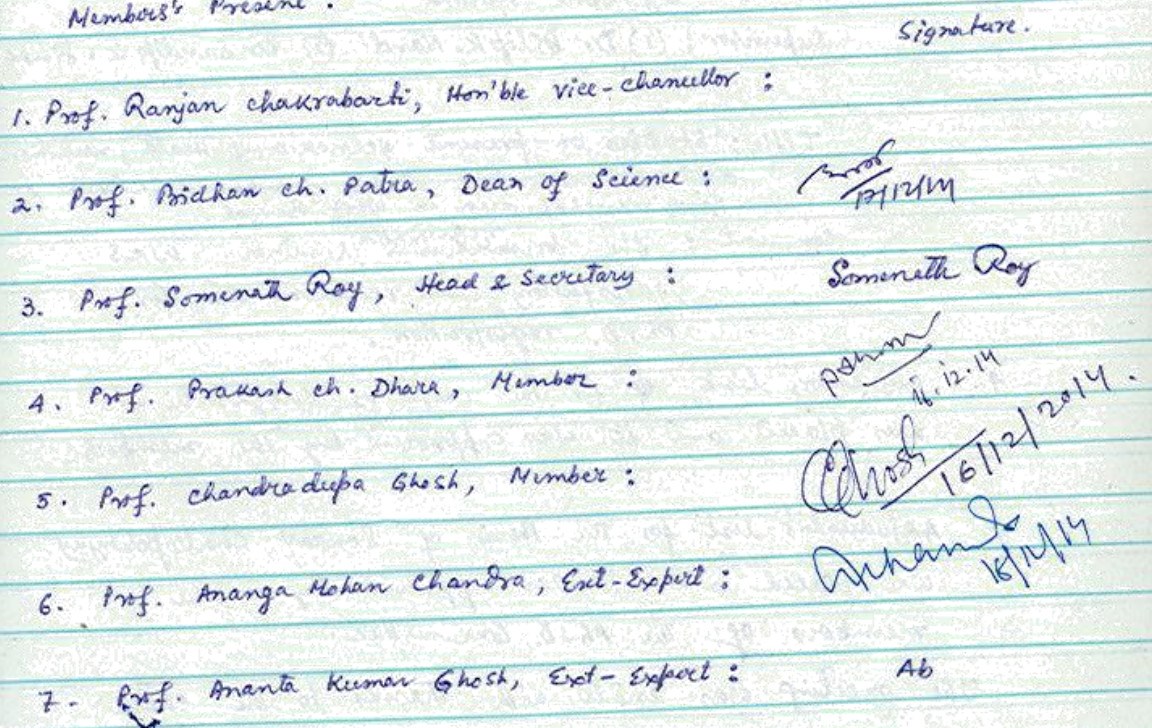 Members's Present :
Signature.
1. Prof. Ranjan Chakrabarti, Hon'ble Vice-Chancellor :
2. Prof. Bidhan Ch. Patra, Dean of Science :
3. Prof. Somenath Roy, Head & Secretary : Somenath Roy
4. Prof. Prakash Ch. Dhara, Member :
16.12.14
5. Prof. Chandradipa Ghosh, Member : CGhosh
16/12/2014.
6. Prof. Ananga Mohan Chandra, Ext-Expert :
16/12/14
7. Prof. Ananta Kumar Ghosh, Ext-Expert : Ab